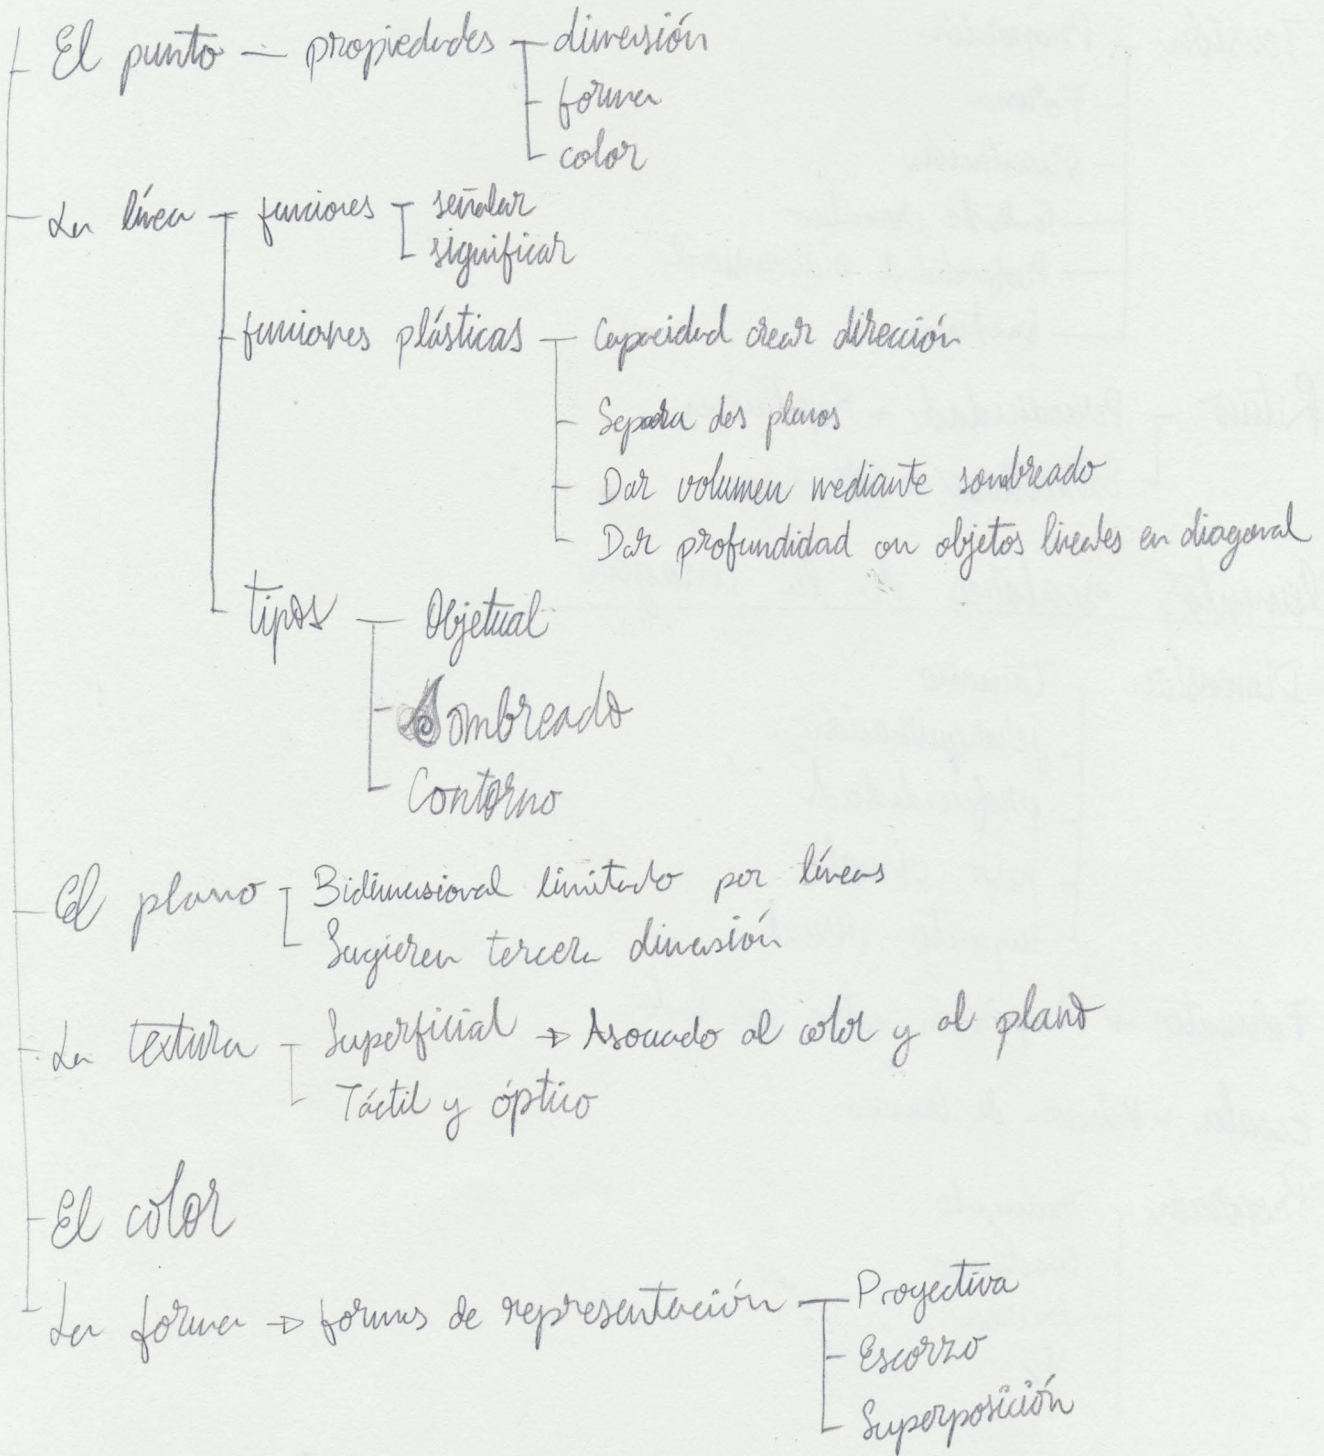 El punto — propiedades — dimensión
forma
color
La línea — funciones — señalar
significar
funciones plásticas — Capacidad crear dirección
Separa dos planos
Dar volumen mediante sombreado
Dar profundidad con objetos lineales en diagonal
tipos — Objetual
Sombreado
Contorno
El plano — Bidimensional limitado por líneas
Sugieren tercera dimensión
La textura — Superficial → Asociado al color y al plano
Táctil y óptico
El color
La forma → formas de representación — Proyectiva
Escorzo
Superposición